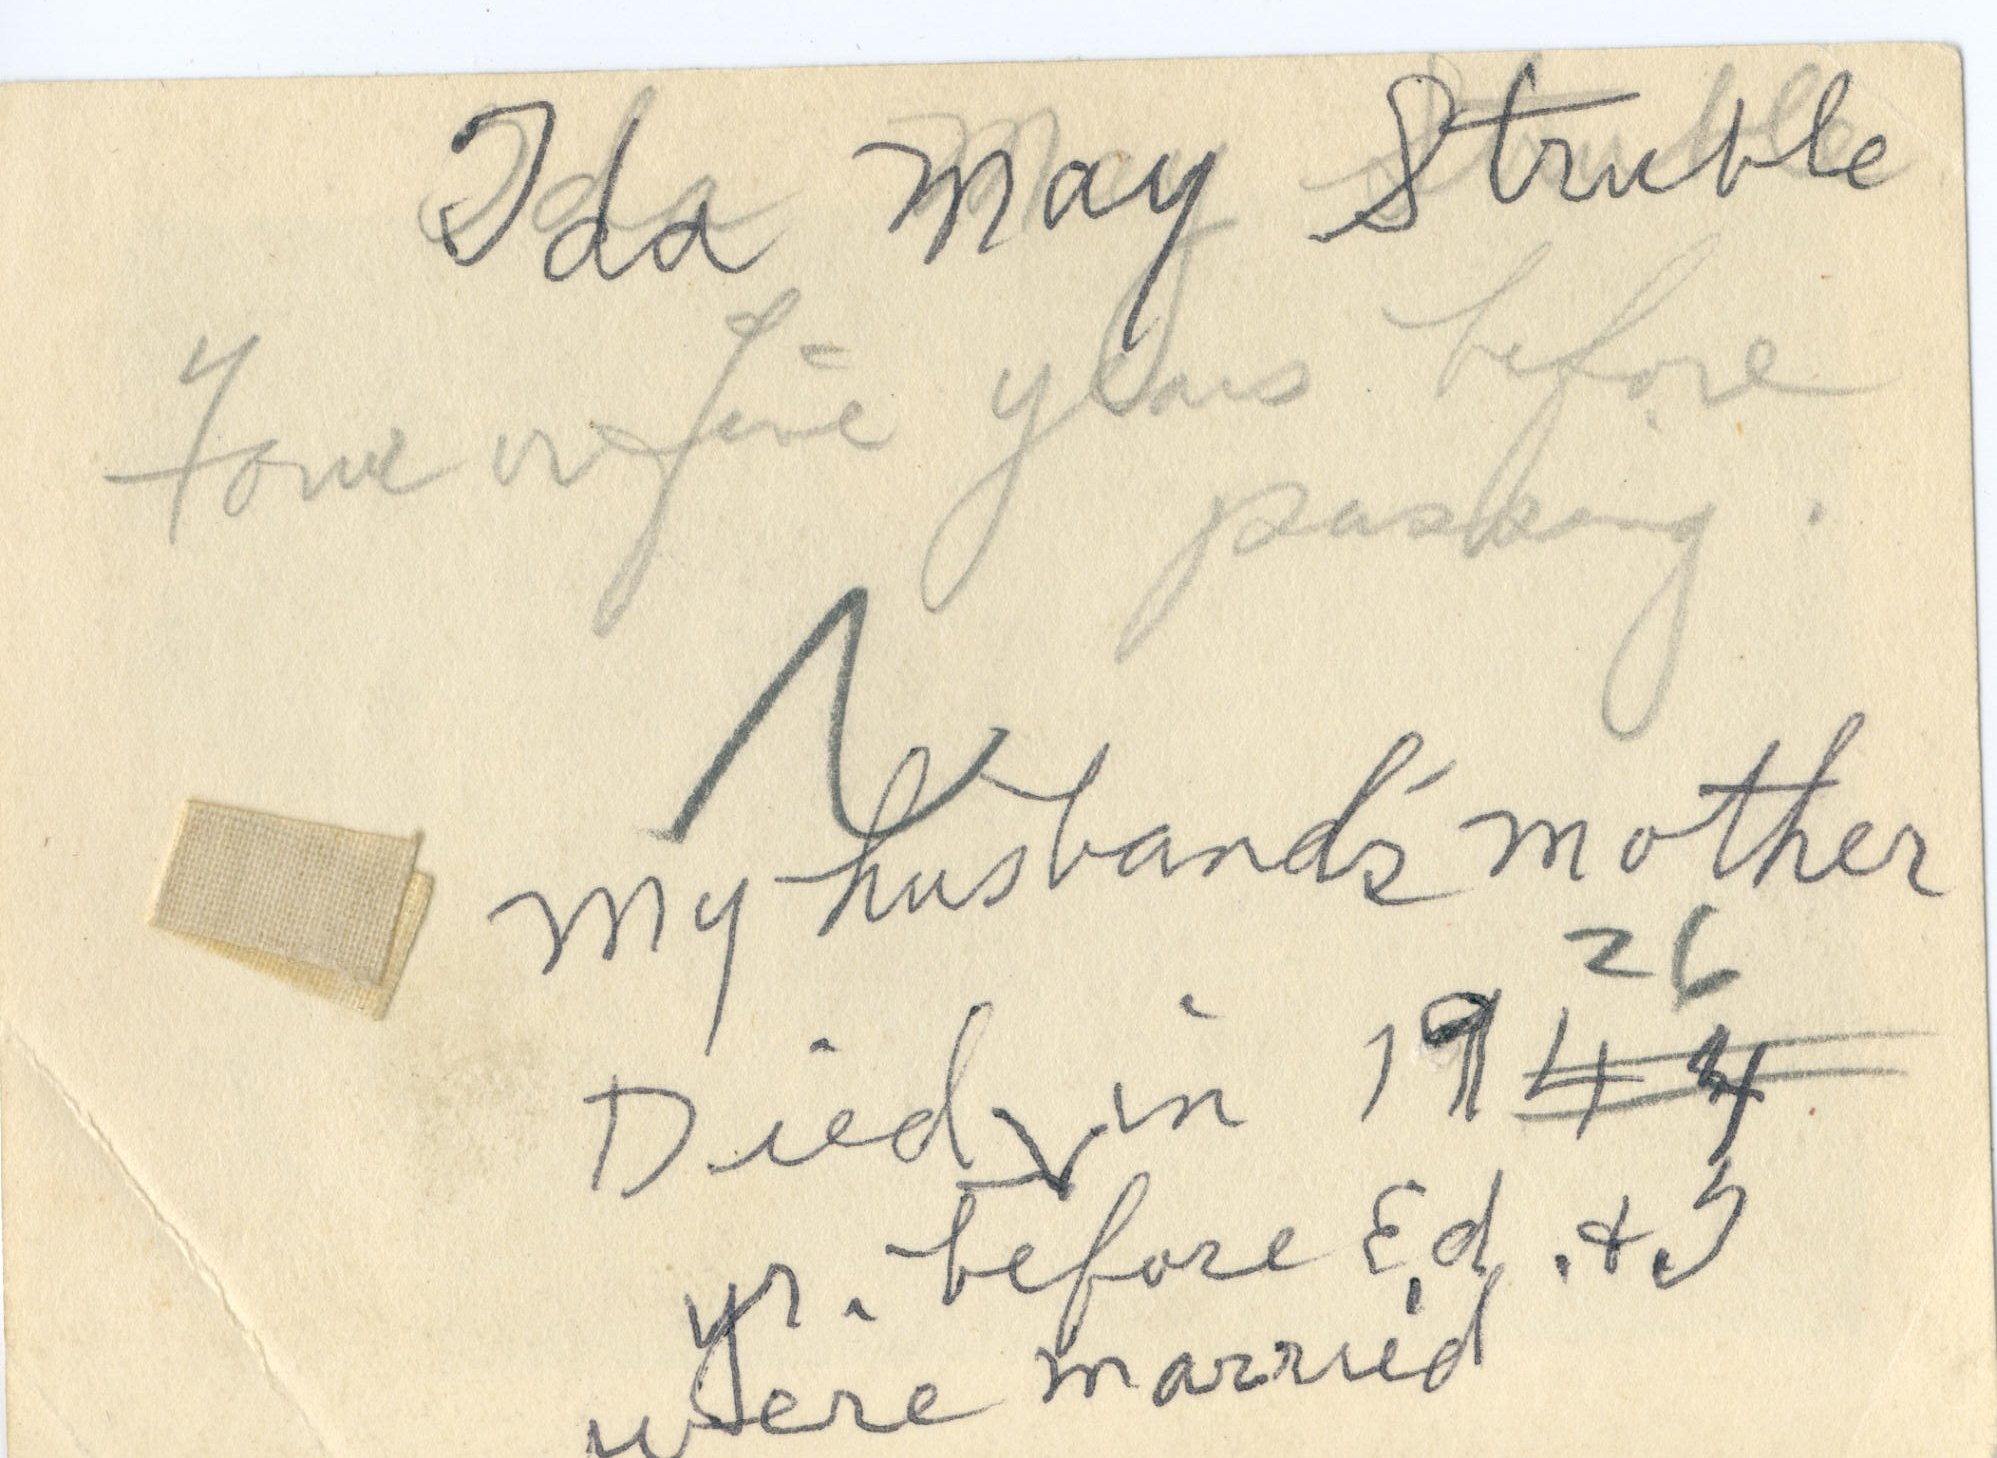 Ida May Struble
Four or five years before
passing.
My husband's mother
26
Died in 1944
yr. before Ed. & I
were married